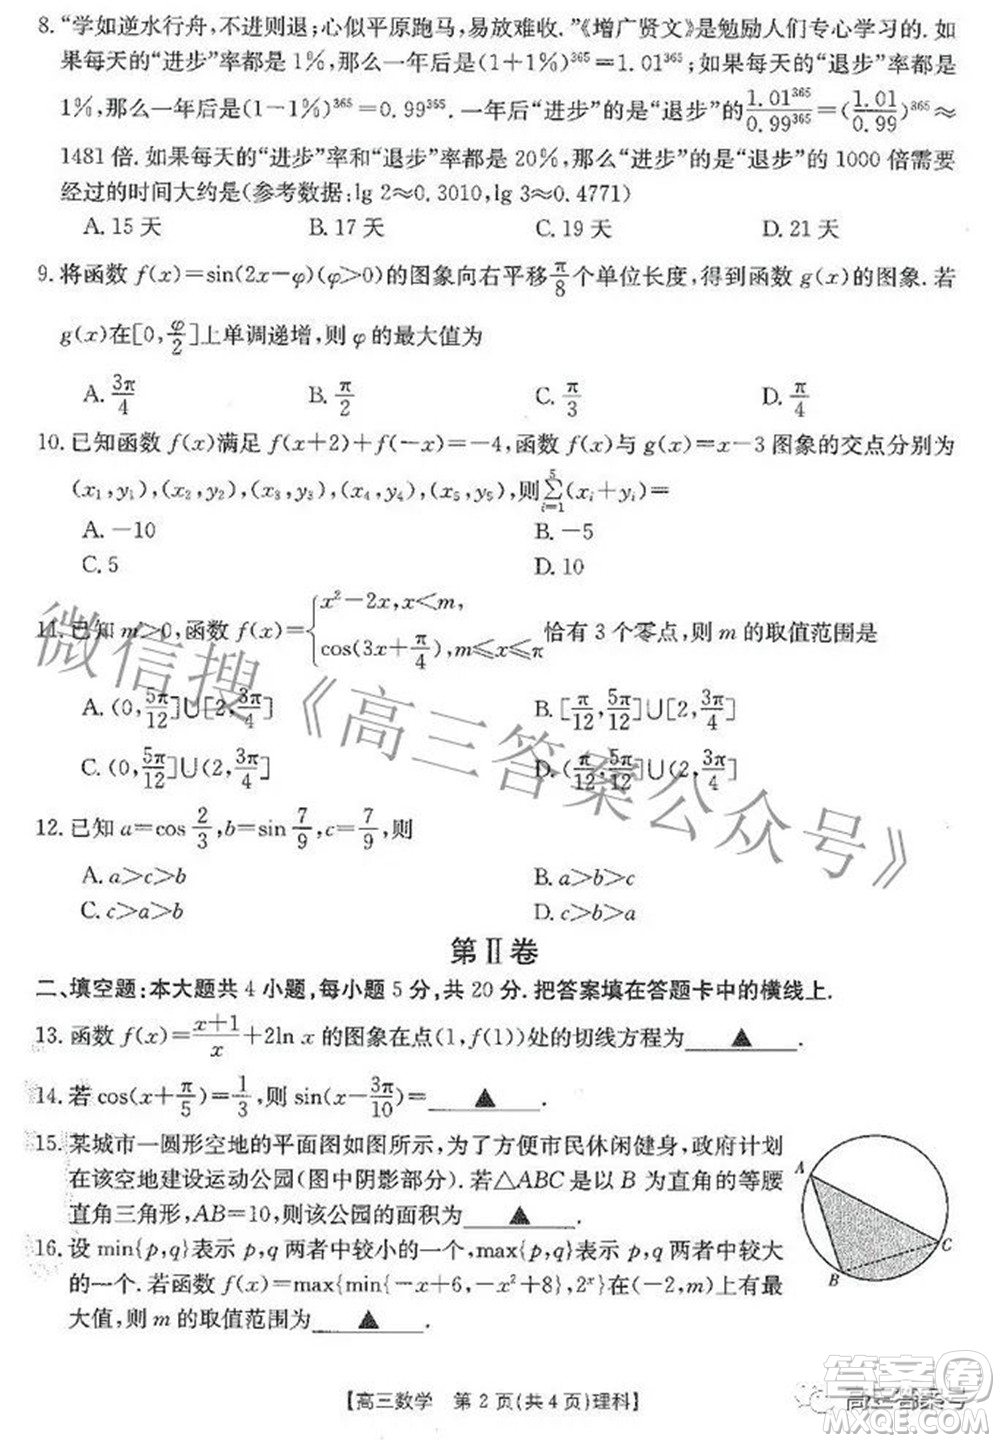 8. “学如逆水行舟,不进则退;心似平原跑马,易放难收.”《增广贤文》是勉励人们专心学习的. 如
果每天的“进步”率都是 1%,那么一年后是(1+1%)³⁶⁵=1.01³⁶⁵;如果每天的“退步”率都是
1%,那么一年后是(1-1%)³⁶⁵=0.99³⁶⁵. 一年后“进步”的是“退步”的1.01³⁶⁵/0.99³⁶⁵=(1.01/0.99)³⁶⁵≈
1481 倍. 如果每天的“进步”率和“退步”率都是 20%,那么“进步”的是“退步”的 1000 倍需要
经过的时间大约是(参考数据:lg 2≈0.3010,lg 3≈0.4771)
A. 15 天 B. 17 天 C. 19 天 D. 21 天
9. 将函数 f(x)=sin(2x-φ)(φ>0)的图象向右平移π/8个单位长度,得到函数 g(x)的图象. 若
g(x)在[0,φ/2]上单调递增,则 φ 的最大值为
A. 3π/4 B. π/2 C. π/3 D. π/4
10. 已知函数 f(x)满足 f(x+2)+f(-x)=-4,函数 f(x)与 g(x)=x-3 图象的交点分别为
(x₁,y₁),(x₂,y₂),(x₃,y₃),(x₄,y₄),(x₅,y₅),则∑_{i=1}^{5}(xᵢ+yᵢ)=
A. -10 B. -5
C. 5 D. 10
11. 已知 m>0,函数 f(x)={x²-2x,x<m, cos(3x+π/4),m≤x≤π 恰有 3 个零点,则 m 的取值范围是
A. (0,5π/12]∪[2,3π/4] B. [π/12,5π/12]∪[2,3π/4]
C. (0,5π/12]∪(2,3π/4] D. (π/12,5π/12]∪(2,3π/4]
12. 已知 a=cos 2/3,b=sin 7/9,c=7/9,则
A. a>c>b B. a>b>c
C. c>a>b D. c>b>a
第Ⅱ卷
二、填空题:本大题共 4 小题,每小题 5 分,共 20 分. 把答案填在答题卡中的横线上.
13. 函数 f(x)=(x+1)/x+2ln x 的图象在点(1,f(1))处的切线方程为 ▲ .
14. 若 cos(x+π/5)=1/3,则 sin(x-3π/10)= ▲ .
15. 某城市一圆形空地的平面图如图所示,为了方便市民休闲健身,政府计划
在该空地建设运动公园(图中阴影部分). 若△ABC 是以 B 为直角的等腰
直角三角形,AB=10,则该公园的面积为 ▲ .
A
B
C
16. 设 min{p,q}表示 p,q 两者中较小的一个,max{p,q}表示 p,q 两者中较大
的一个. 若函数 f(x)=max{min{-x+6,-x²+8},2ˣ}在(-2,m)上有最
大值,则 m 的取值范围为 ▲ .
【高三数学 第 2 页(共 4 页)理科】
微信搜《高三答案公众号》
高三答案号
答案圈
MXQE.COM